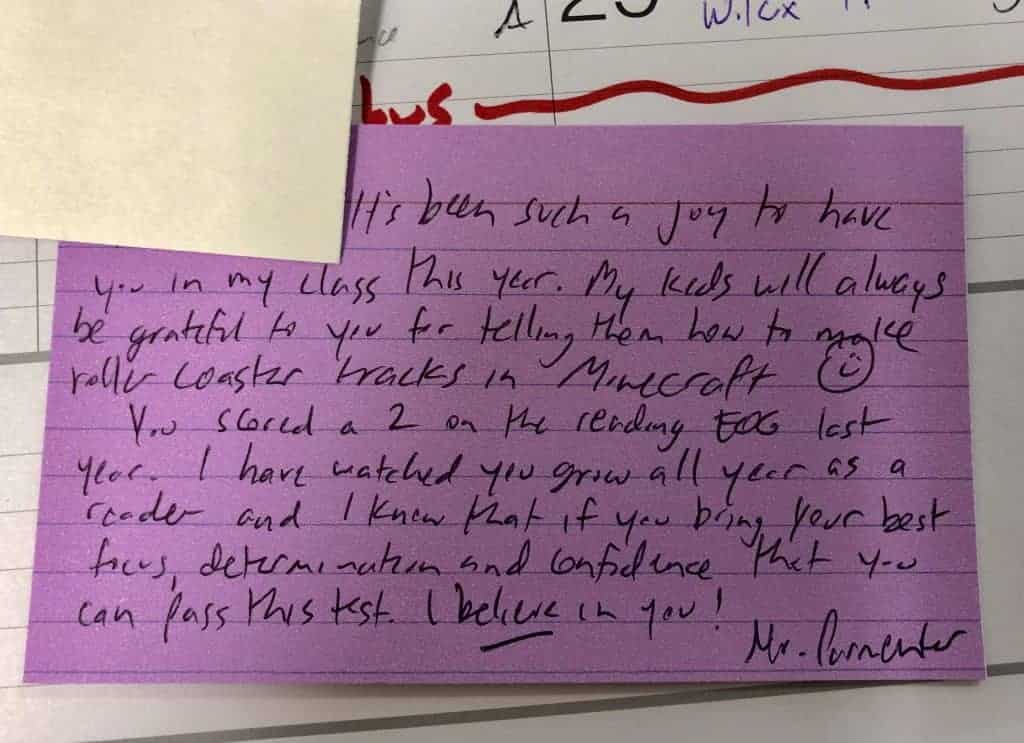 A 25 Wilcx
bus
It's been such a joy to have
you in my class this year. My kids will always
be grateful to you for telling them how to make
roller coaster tracks in Minecraft ☺
You scored a 2 on the reading EOG last
year. I have watched you grow all year as a
reader and I know that if you bring your best
focus, determination and confidence that you
can pass this test. I believe in you!
Mr. Parmenter